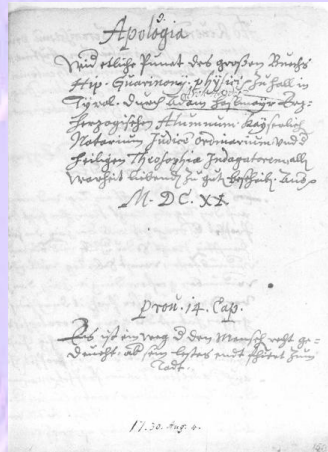 Apologia
Wid etliche Punct des großen Buechs
Hip. Guarinonij. physici zu Hall in
Tyrol. durch Adam Haslmayr Erz-
herzogischen Alumnum. Kayserlich
Notarium Judice ordinarium und d
heiligen Theosophia Indagatorem alle
warheit liebenden zu guet
M. DC. XX
Prov. 14. Cap.
Es ist ein weg d den Mensch recht ge-
deucht: ab sein lestes endt füeret zum
Todt.
1730. Aug. 4.